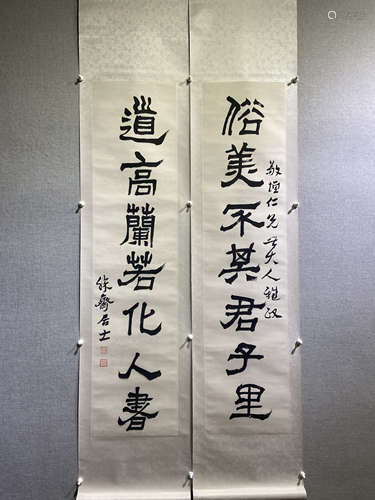 俗美不其君子里
仁兄大人雅政
道高蘭若化人書
齋居士